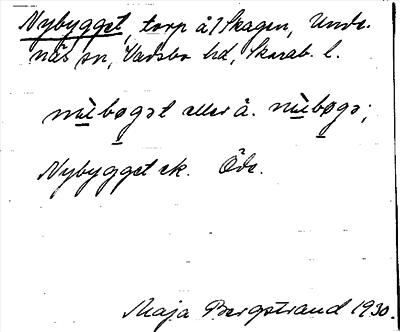 Nybygget, torp å / Skagen, Unde-
näs sn, Vadsbo hd, Skarab. l.
nỳbogət eller å. nỳbogə;
Nybygget ek. Öde.
Maja Bergstrand 1930.